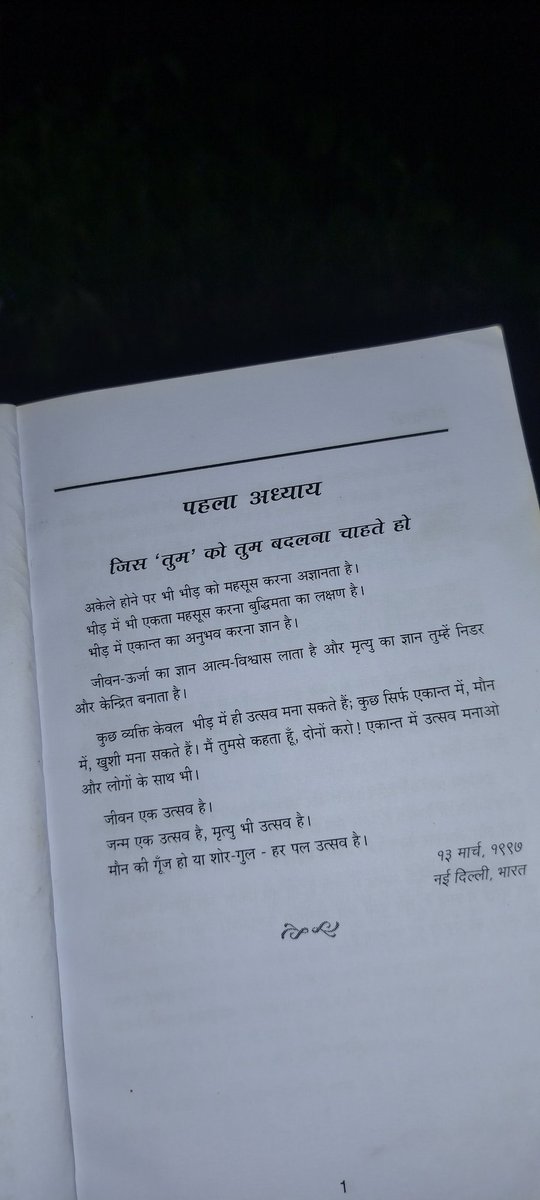 पहला अध्याय
जिस ‘तुम’ को तुम बदलना चाहते हो
अकेले होने पर भी भीड़ को महसूस करना अज्ञानता है।
भीड़ में भी एकता महसूस करना बुद्धिमता का लक्षण है।
भीड़ में एकान्त का अनुभव करना ज्ञान है।
जीवन-ऊर्जा का ज्ञान आत्म-विश्वास लाता है और मृत्यु का ज्ञान तुम्हें निडर
और केन्द्रित बनाता है।
कुछ व्यक्ति केवल भीड़ में ही उत्सव मना सकते हैं; कुछ सिर्फ एकान्त में, मौन
में, खुशी मना सकते हैं। मैं तुमसे कहता हूँ, दोनों करो! एकान्त में उत्सव मनाओ
और लोगों के साथ भी।
जीवन एक उत्सव है।
जन्म एक उत्सव है, मृत्यु भी उत्सव है।
मौन की गूँज हो या शोर-गुल - हर पल उत्सव है।
१३ मार्च, १९९७
नई दिल्ली, भारत
1